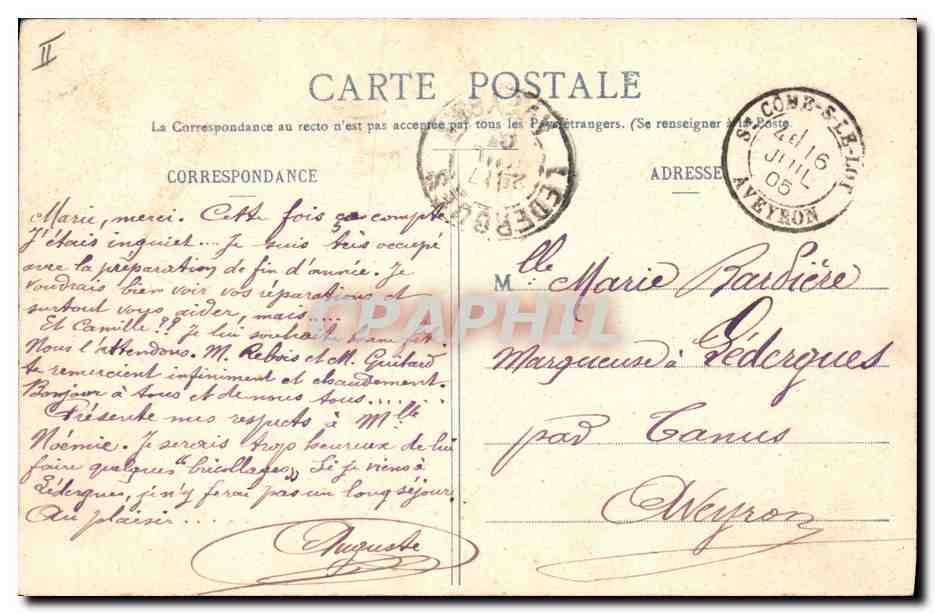 II
CARTE POSTALE
La Correspondance au recto n'est pas acceptée par tous les Pays étrangers. (Se renseigner à la Poste.
CORRESPONDANCE
Marie, merci. Cette fois ça compte
J'étais inquiet.... Je suis très occupé
avec la préparation de fin d'année. Je
voudrais bien voir vos réparations et
surtout vous aider, mais.....
Et Camille ?? Je lui souhaite bonne
Nous l'attendons. M. Rebois et M. Guitard
te remercient infiniment et chaudement.
Bonjour à tous et de nous tous.......
Présente mes respects à Mlle
Noémie. Je serais trop heureux de lui
faire quelques "bricollages„ Si je viens à
Lédergues, je n'y ferai pas un long séjour.
Au plaisir....
Auguste
ADRESSE
Mlle Marie Bardière
Marqueuse à Lédergues
par Tanus
Aveyron
ST COME-S-LE-LOT
4E/ 16
JUIL
05
AVEYRON
LEDERGUES
CPAPHIL